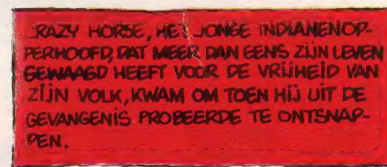 CRAZY HORSE, HET JONGE INDIANENOP-
PERHOOFD, DAT MEER DAN EENS ZIJN LEVEN
GEWAAGD HEEFT VOOR DE VRIJHEID VAN
ZIJN VOLK, KWAM OM TOEN HIJ UIT DE
GEVANGENIS PROBEERDE TE ONTSNAP-
PEN.